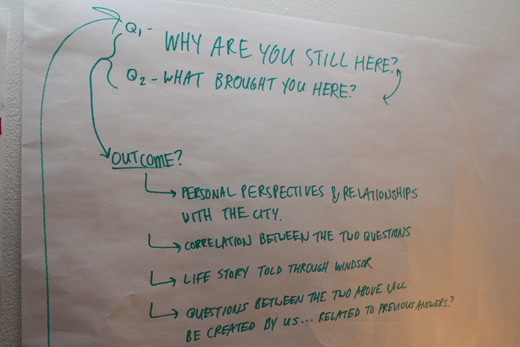 Q1- WHY ARE YOU STILL HERE?
Q2-WHAT BROUGHT YOU HERE?
OUTCOME?
PERSONAL PERSPECTIVES & RELATIONSHIPS
WITH THE CITY.
CORRELATION BETWEEN THE TWO QUESTIONS
LIFE STORY TOLD THROUGH WINDSOR
QUESTIONS BETWEEN THE TWO ABOVE WILL
BE CREATED BY US... RELATED TO PREVIOUS ANSWERS?